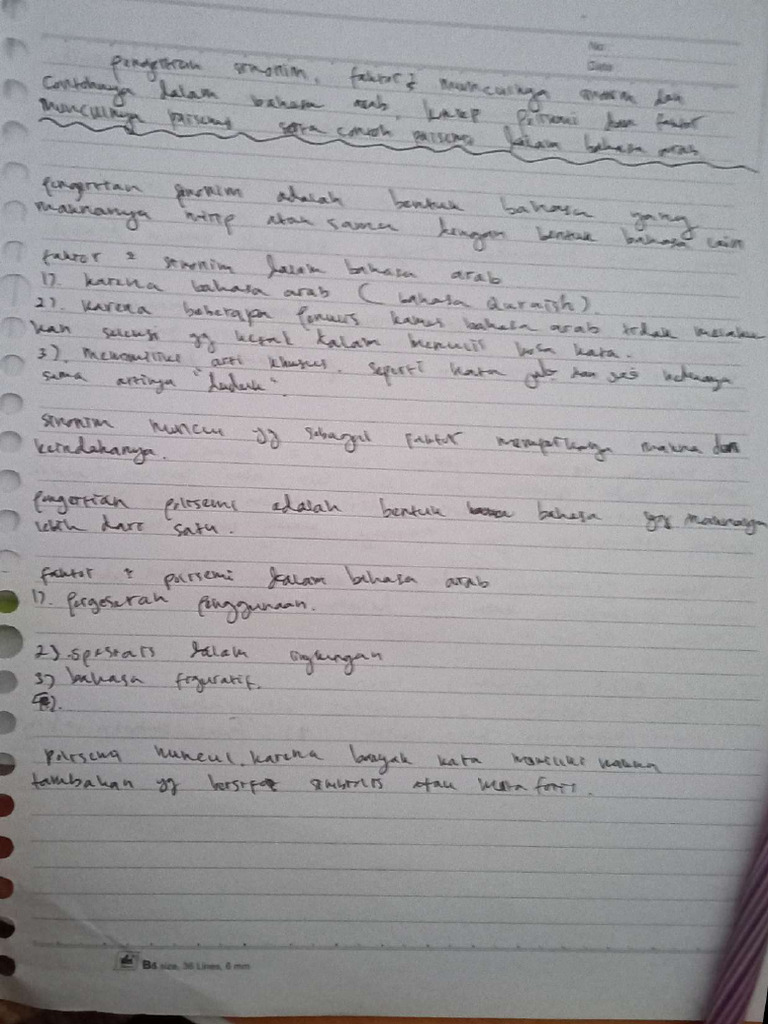 No
Date
pengertian sinonim, faktor² munculnya sinonim dan
contohnya dalam bahasa arab, konsep polisemi dan faktor
munculnya polisemi serta contoh polisemi dalam bahasa arab
pengertian sinonim adalah bentuk bahasa yang
maknanya mirip atau sama dengan bentuk bahasa lain
faktor² sinonim dalam bahasa arab
1). karena bahasa arab (bahasa Quraish).
2). karena beberapa penulis kamus bahasa arab tidak melaku
kan seleksi yg ketat dalam menulis kosa kata.
3). memiliki arti khusus. seperti kata dan keduanya
sama artinya "duduk".
sinonim muncul yg sebagai faktor memperkaya makna dan
keindahanya.
pengertian polisemi adalah bentuk bahasa yg maknanya
lebih dari satu.
faktor² polisemi dalam bahasa arab
1). pergeseran penggunaan.
2). spesialis dalam lingkungan
3) bahasa figuratif.
polisemi muncul karena banyak kata memiliki makna
tambahan yg bersifat simbolis atau metaforis.
B5 size, 36 Lines, 6 mm